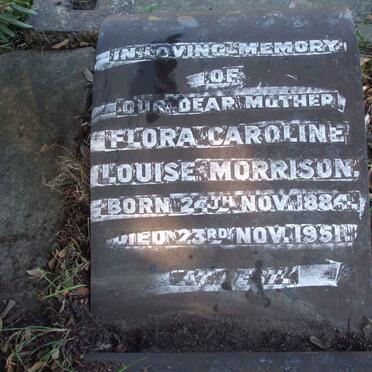 IN LOVING MEMORY
OF
OUR DEAR MOTHER,
FLORA CAROLINE
LOUISE MORRISON,
BORN 24TH NOV. 1884.
DIED 23RD NOV. 1951.
AT REST.